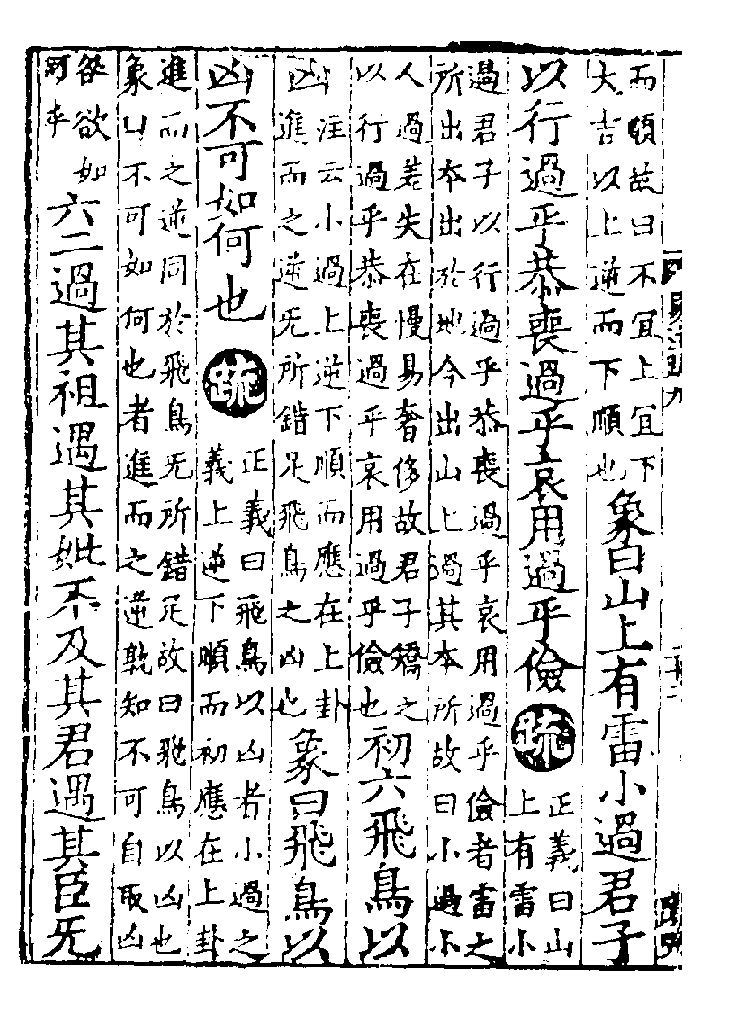 而順故曰不宜上宜下
大吉以上逆而下順也
象曰山上有雷小過君子
以行過乎恭喪過乎哀用過乎儉疏
正義曰山
上有雷小
過君子以行過乎恭喪過乎哀用過乎儉者雷之
所出本出於地今出山上過其本所故曰小過小
人過差失在慢易奢侈故君子矯之
以行過乎恭喪過乎哀用過乎儉也
初六飛鳥以
凶
注云小過上逆下順而應在上卦
進而之逆无所錯足飛鳥之凶也
象曰飛鳥以
凶不可如何也疏
正義曰飛鳥以凶者小過之
義上逆下順而初應在上卦
進而之逆同於飛鳥无所錯足故曰飛鳥以凶也
象曰不可如何也者進而之逆孰知不可自取凶
咎欲如
何乎
六二過其祖遇其妣不及其君遇其臣无